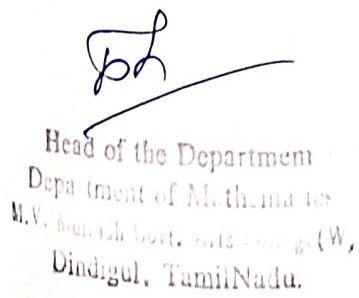 Head of the Department
Department of Mathematics
M.V. Govt. Arts (W,
Dindigul, TamilNadu.